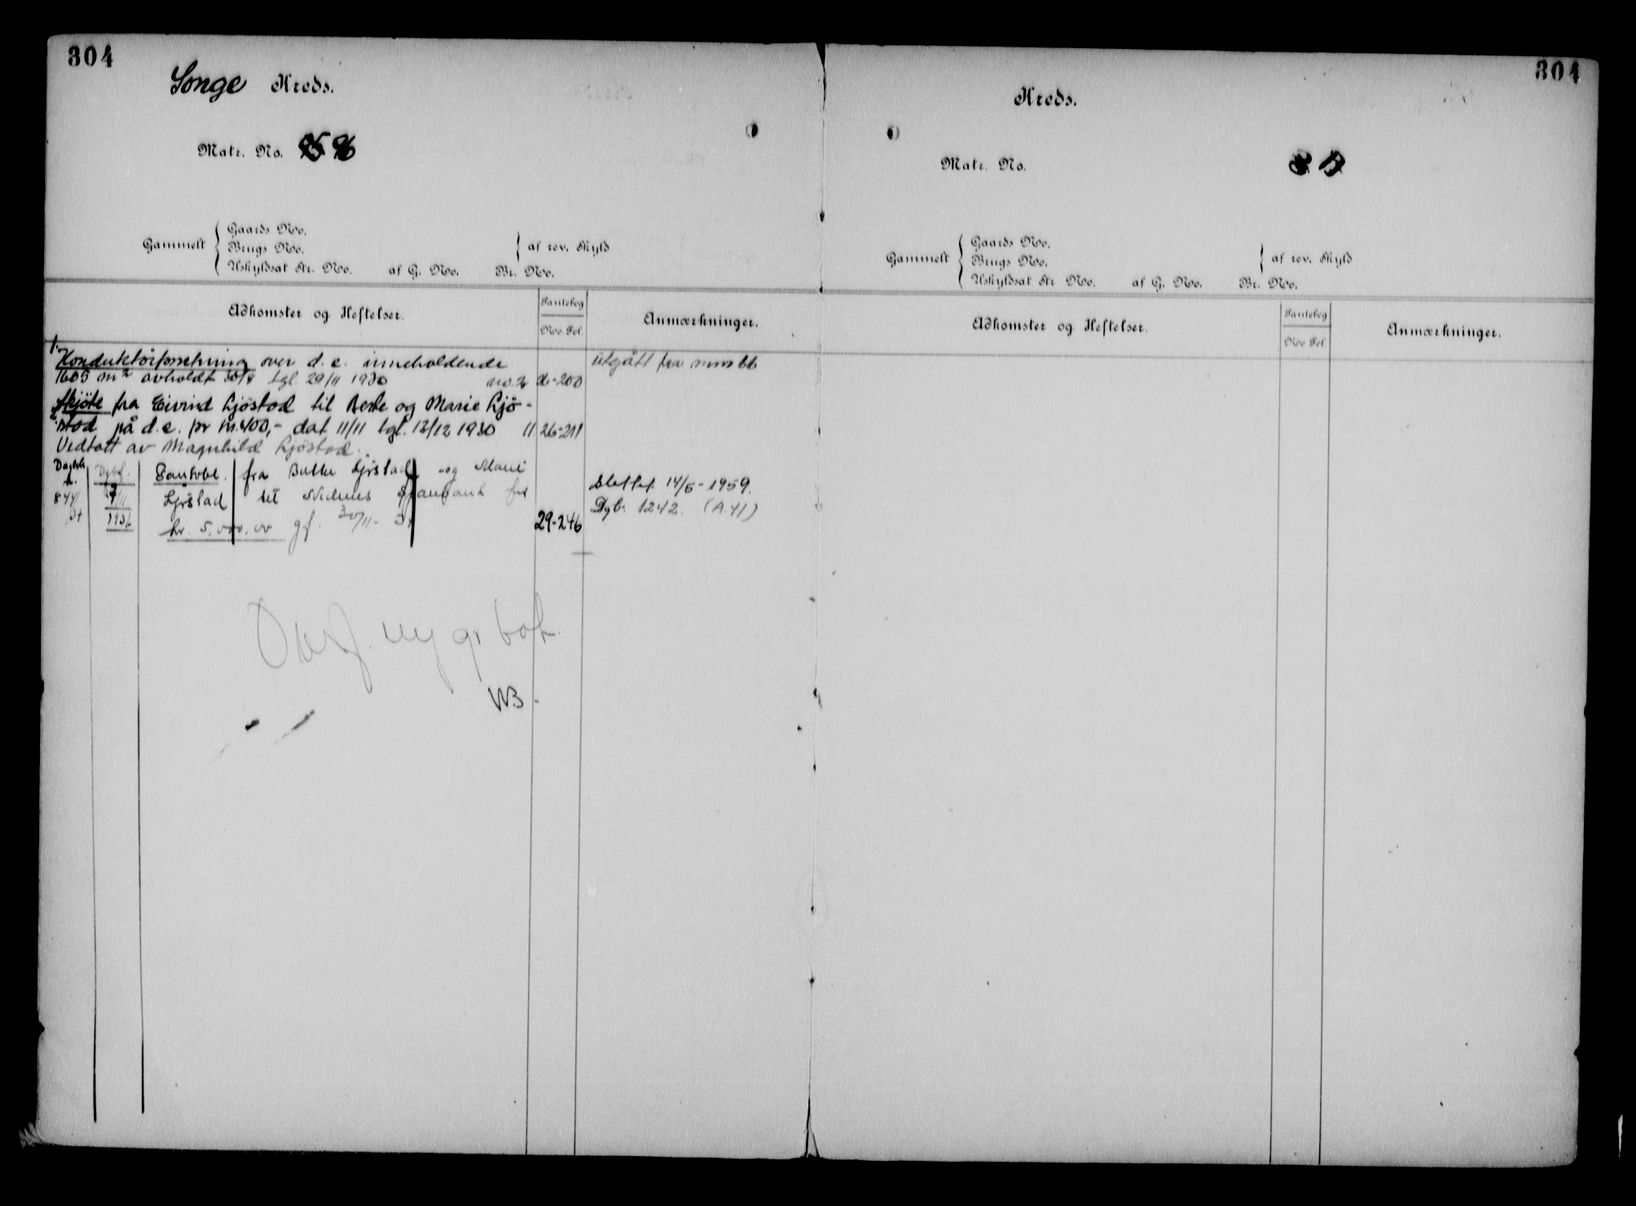 304
Songe Kreds.
Matr. No. 96
Gammelt { Gaards No.
Brugs No.
Uskyldsat Str. No. af G. No. Br. No. } af rev. Skyld
Adkomster og Heftelser.
Pantebog
No. Fol.
Anmærkninger.
1.
Konduktørforretning over d. e. inneholdende
1605 m² avholdt 30/8 tgl. 29/11 1930 26-200
utgått fra
Skjøte fra Eivind Ljøstad til og Marie Ljø-
stad på d. e. pr kr. 400,- dat 11/11 tgl. 13/12 1930 11 26-211
Vedtatt av Magnhild Ljøstad.
Dagbok Dgbf. Pantobl. fra Ljøstad og Marie
844/ Ljøstad til Nidenes Sparebank for
34 1934 kr. 5,000,00 gf. 30/11- 34 29-246
Slettet 14/5-1959.
Dgb. 1242. (A.41)
Overf. ny gr bok.
WB-
304
Kreds.
Matr. No.
Gammelt { Gaards No.
Brugs No.
Uskyldsat Str No. af G. No. Br. No. } af rev. Skyld
Adkomster og Heftelser.
Pantebog
No. Fol.
Anmærkninger.